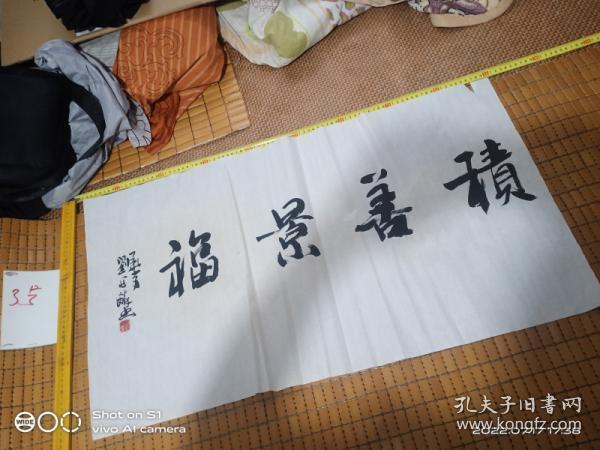 積善景福
35
WIDE
Shot on S1
vivo AI camera
孔夫子旧书网
www.kongfz.com
2022.07.17 17:38